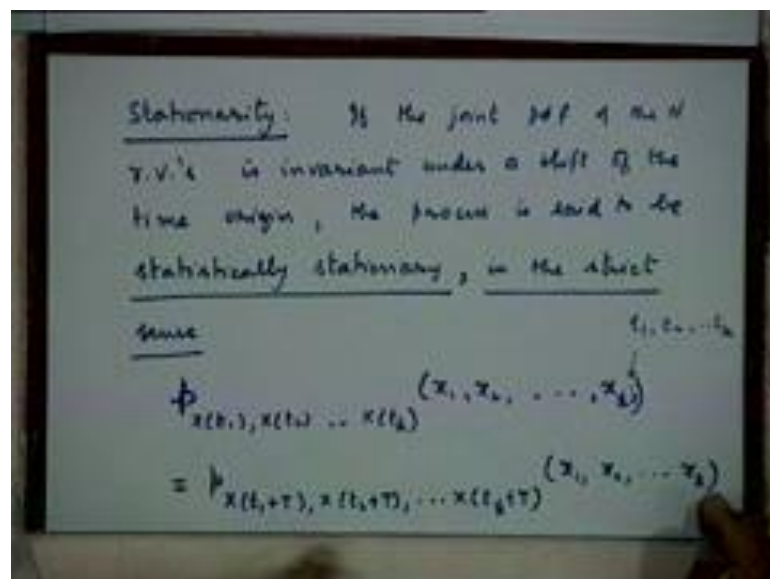 Stationarity: If the joint pdf of the N
r.v.'s is invariant under a shift of the
time origin, the process is said to be
statistically stationary, in the strict
sense
t₁, t₂, ... tₖ
p X(t₁), X(t₂) .. X(tₖ) (x₁, x₂, . ..., xₖ;)
= p X(t₁+T), X(t₂+T), ... X(tₖ+T) (x₁, x₂, ... xₖ)